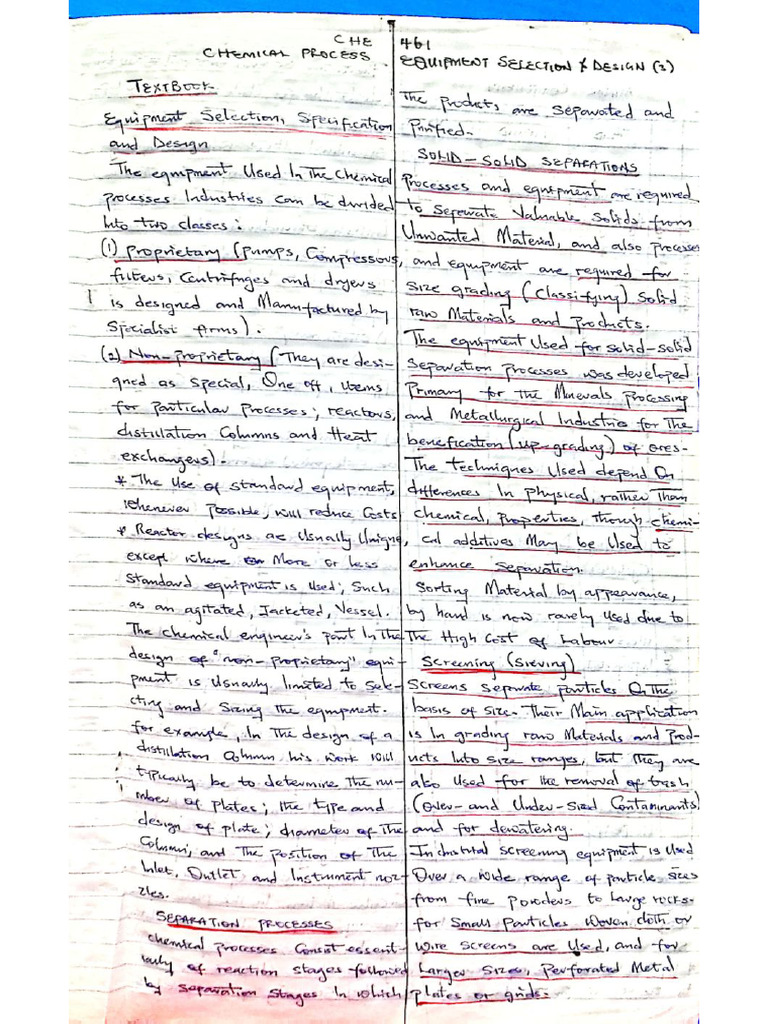 CHE 461
CHEMICAL PROCESS EQUIPMENT SELECTION & DESIGN (3)
TEXTBOOK
Equipment Selection, Specification
and Design
The equipment Used In The Chemical
processes Industries can be divided
Into two classes:
(1) Proprietary (pumps, Compressors,
filters, Centrifuges and dryers
is designed and Manufactured by
Specialist firms).
(2) Non-proprietary (They are desi-
gned as special, One off, items
for particular processes; reactors,
distillation Columns and Heat
exchangers).
* The Use of standard equipment,
whenever possible, will reduce Costs
* Reactor designs are Usually Unique,
except where More or less
Standard equipment is used; Such
as an agitated, Jacketed, Vessel.
The chemical engineer's part In the
design of "non-proprietary" equi-
pment is Usually limited to Sele-
cting and Sizing the equipment.
for example, In the design of a
distillation Column his work Will
typically be to determine the nu-
mber of plates; the type and
design of plate; diameter of the
Column; and The position of The
Inlet, Outlet and Instrument noz-
zles.
SEPARATION PROCESSES
Chemical processes Consist essent-
ially of reaction stages followed
by Separation Stages In which
The products are separated and
Purified.
SOLID-SOLID SEPARATIONS
Processes and equipment are required
to Separate Valuable Solids from
Unwanted Material, and also processes
and equipment are required for
Size grading (Classifying) Solid
raw Materials and products.
The equipment Used for solid-solid
Separation processes was developed
Primary for the Minerals processing
and Metallurgical Industries for The
benefication (up-grading) of ores.
The techniques Used depend On
differences In physical, rather Than
chemical, properties, though chemi-
cal additives May be Used to
enhance Separation.
Sorting Material by appearance,
by hand is now rarely used due to
The High Cost of Labour.
Screening (Sieving)
Screens separate particles On The
basis of size. Their Main application
is In grading raw Materials and Prod-
ucts Into size ranges, but They are
also Used for the removal of trash
(over- and Under-sized Contaminants)
and for dewatering.
Industrial Screening equipment is Used
Over a wide range of particle sizes
from fine powders to Large rocks.
for Small Particles Woven cloth or
Wire screens are Used, and for
Larger Sizes, Perforated Metal
plates or grids.